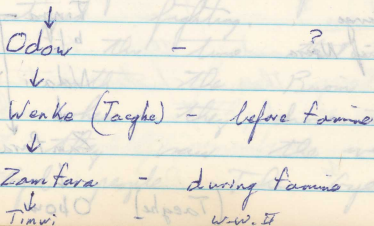 ↓
Odow - ?
↓
Wenke (Taeghe) - before famine
↓
Zamfara - during famine
↓
Timwi W.W. II